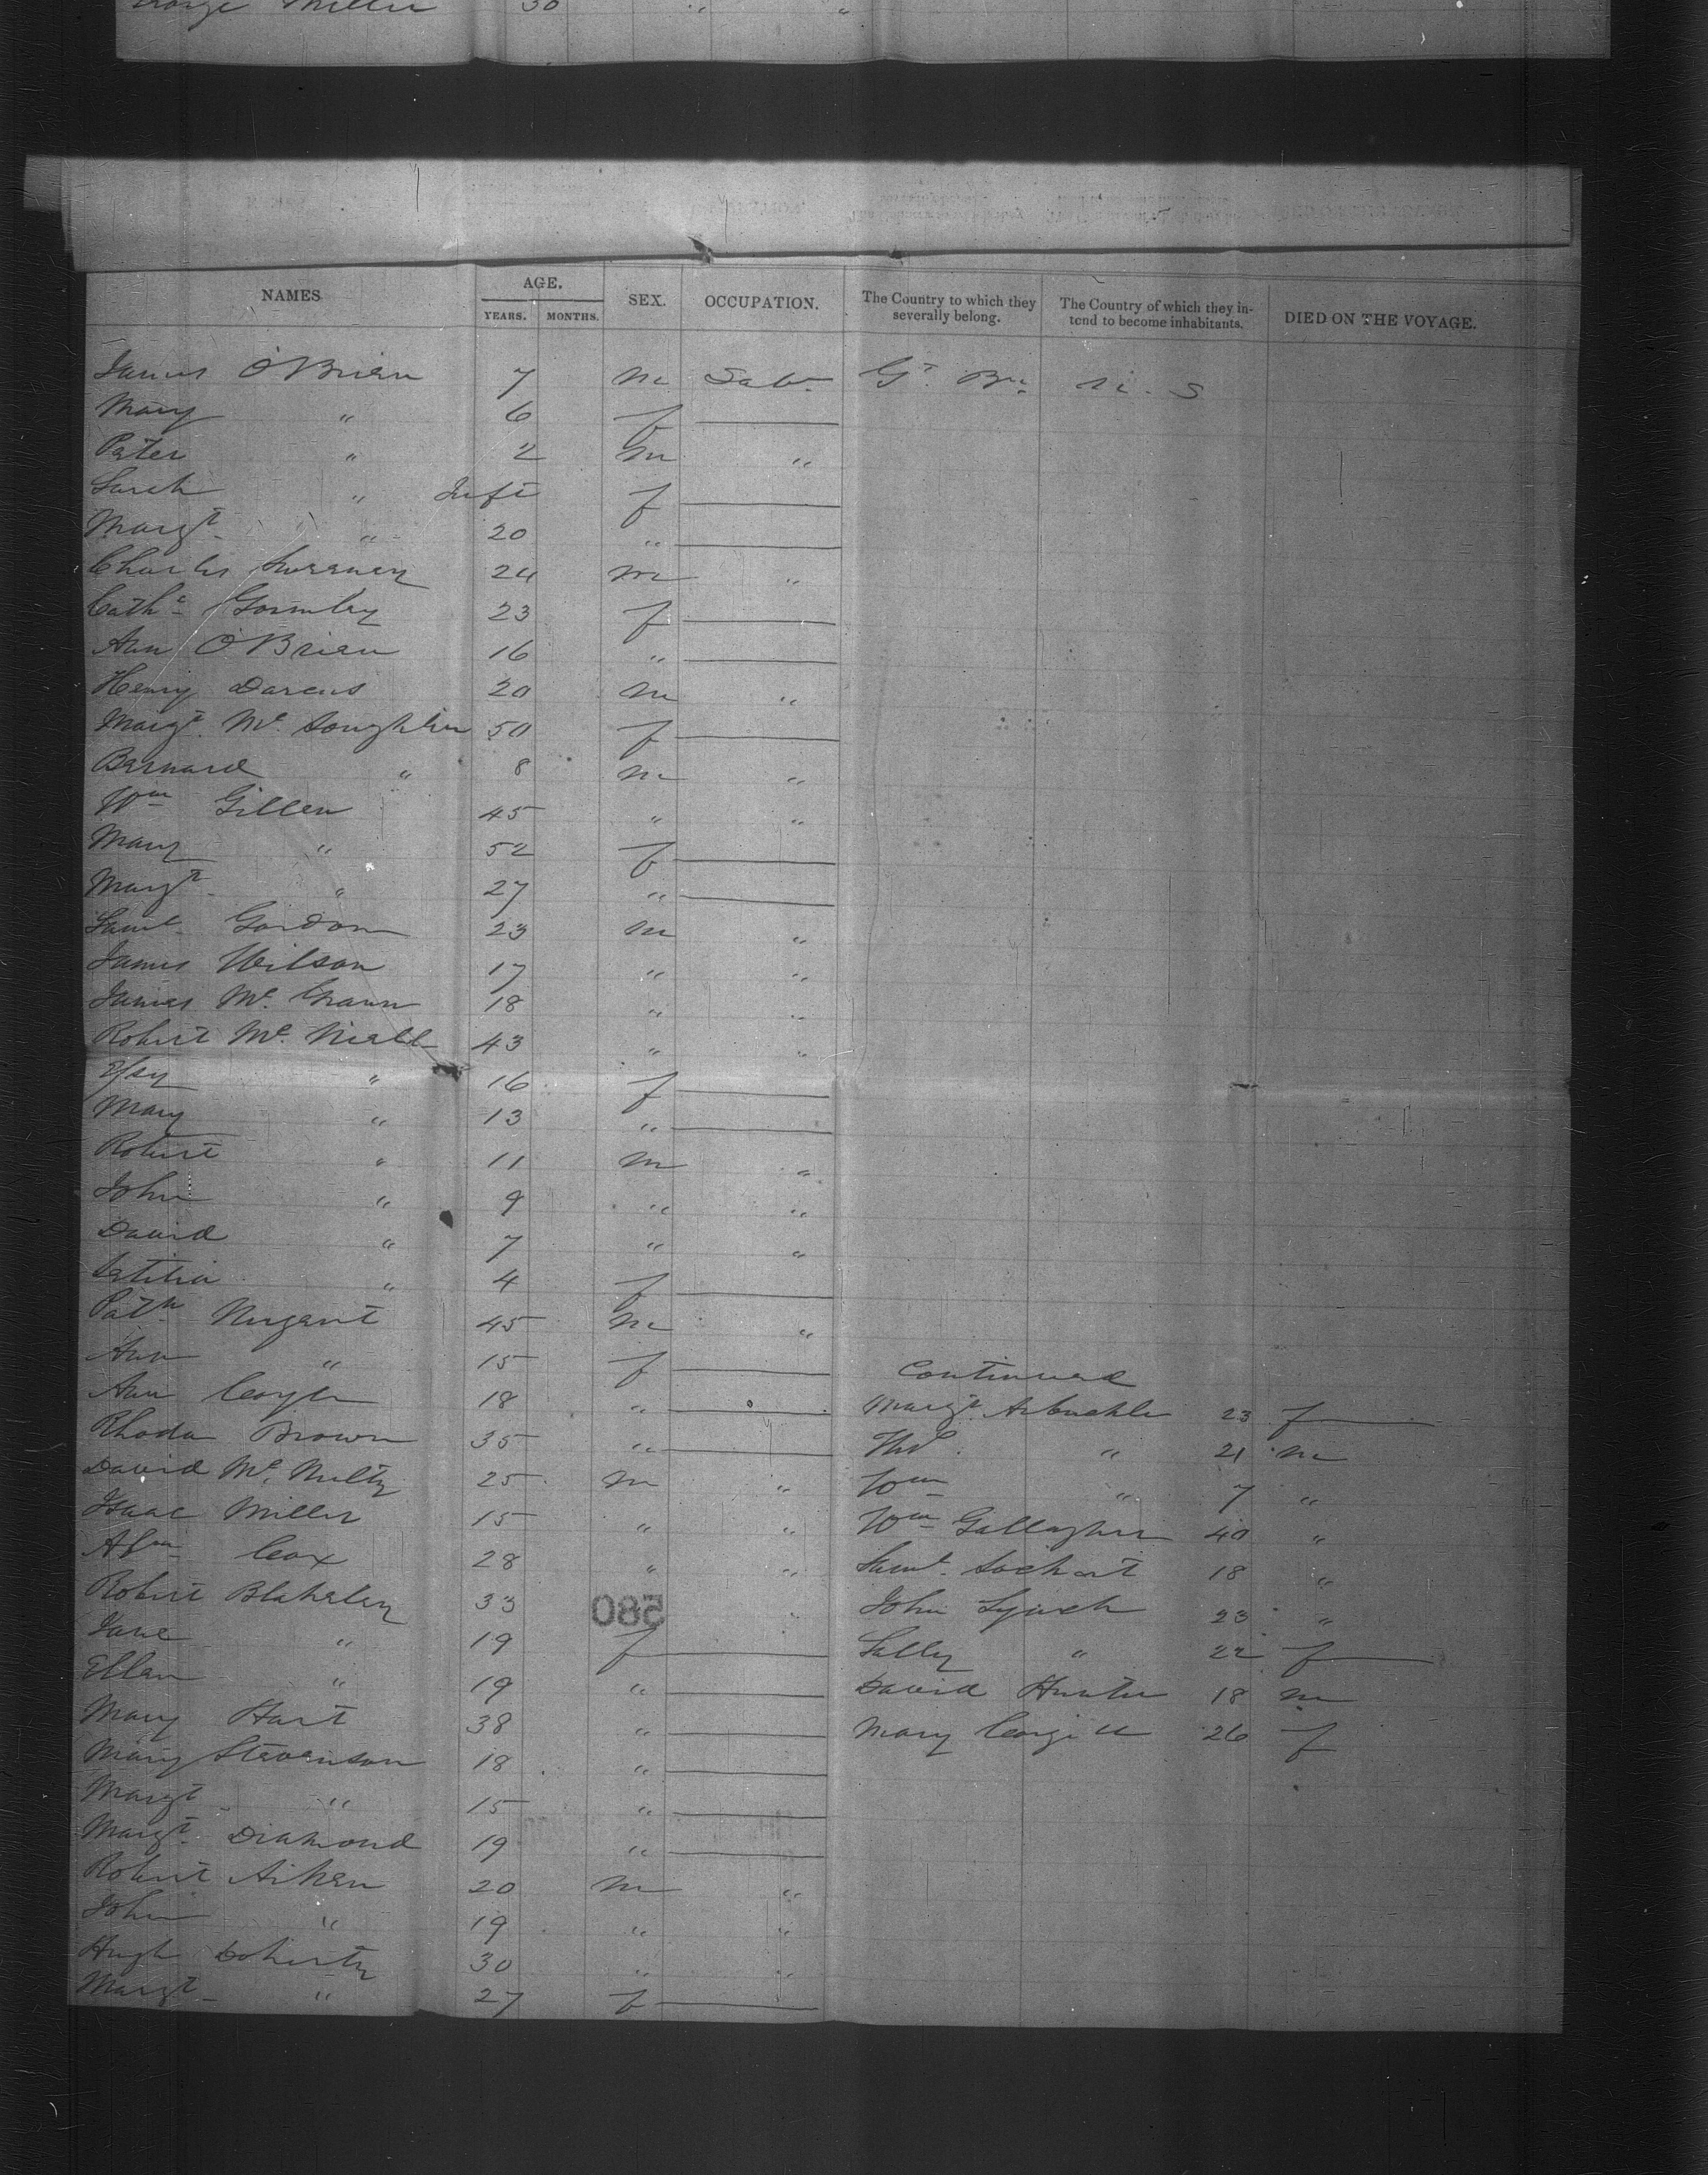 George Miller 30 " "
NAMES AGE. YEARS. MONTHS. SEX. OCCUPATION. The Country to which they severally belong. The Country of which they intend to become inhabitants. DIED ON THE VOYAGE.
James O'Brien 7 m Labr Gt. Bn. U. S
Mary " 6 f
Peter " 2 m "
Sarah " Inft f
Margt " 20 "
Charles Sweeney 24 m "
Cathe Gormley 23 f
Ann O'Brien 16 "
Henry Darcus 20 m "
Margt. Mc Loughlin 50 f
Barnard " 8 m "
Wm Gillen 45 " "
Mary " 52 f
Margt " 27 "
Saml Gordon 23 m "
James Wilson 17 " "
James Mc 18 " "
Robert Mc. Niell 43 " "
" 16 f
Mary " 13 "
Robert " 11 m "
John " 9 " "
David " 7 " "
Letitia " 4 f
Patk Nugent 45 m "
Ann " 15 f
Ann Coyle 18 "
Rhoda Brown 35 "
David Mc. Nulty 25 m "
Isaac Miller 15 " "
Cox 28 " "
Robert Blakeley 33 "
580
Jane " 19 f
Ellen " 19 "
Mary Hart 38 "
Mary Stevenson 18 "
Margt " 15 "
Margt Diamond 19 "
Robert Aiken 20 m "
John " 19 " "
Hugh Doherty 30 " "
Margt " 27 f
Continued
Margt Arbuckle 23 f
Thos. " 21 m
Wm " 7 "
Wm Gallagher 40 "
Saml. Lockart 18 "
John Lynch 23 "
Sally " 22 f
David Hunter 18 m
Mary 26 f